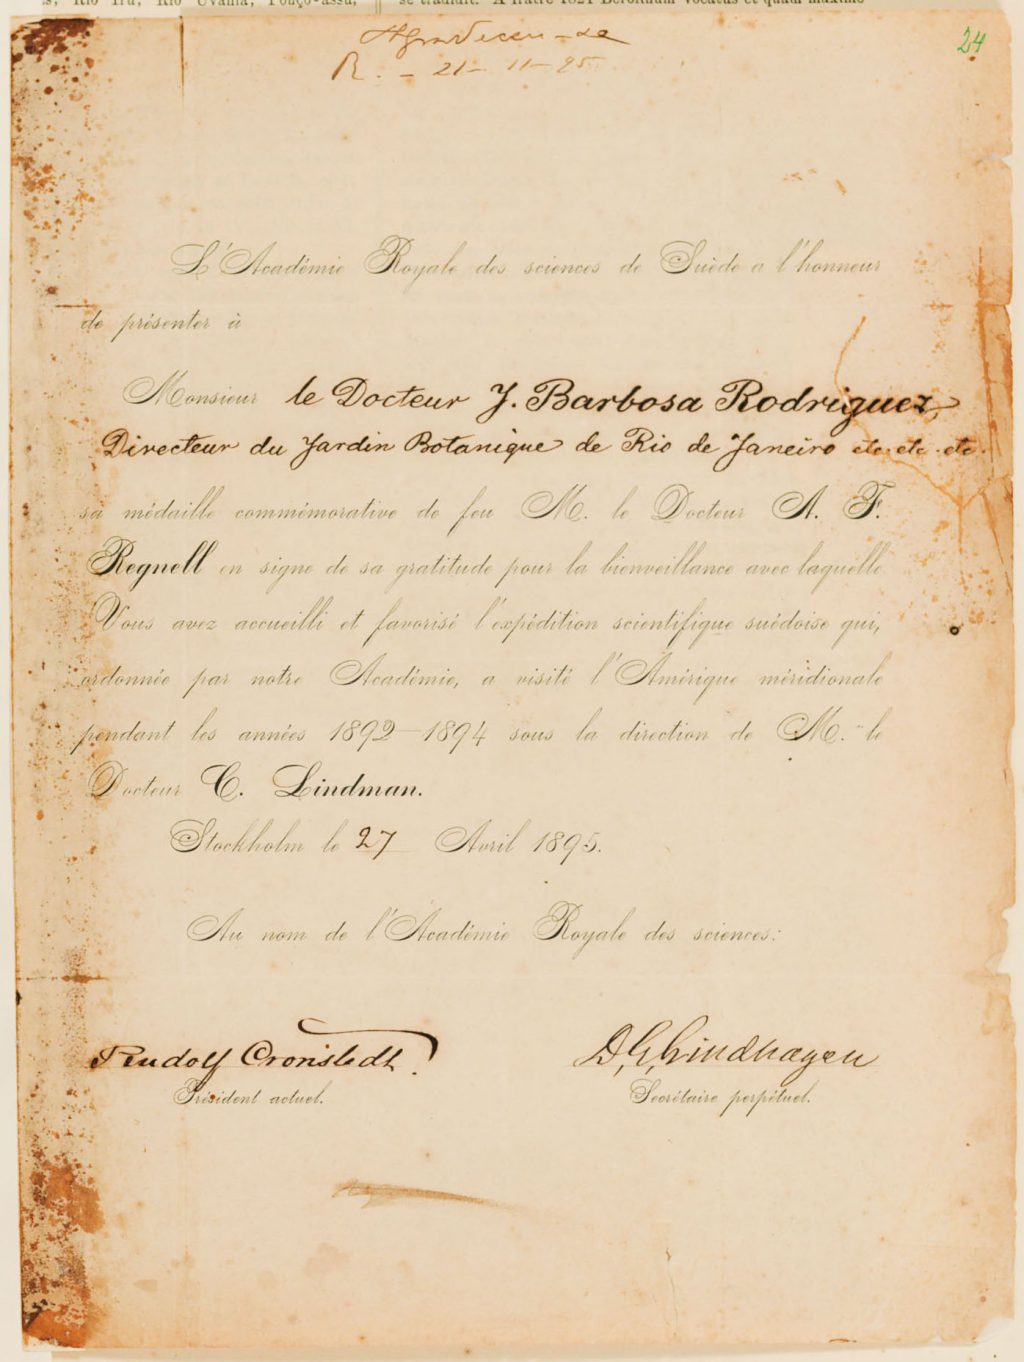 s, Rio Ira, Rio Uvahia, Touço-assu,
se traduit. A fratre 1821 Berolinum vocatus et quam maxime
Agradeceu-se
R. - 21 - 11 - 95
24
L'Académie Royale des sciences de Suède a l'honneur
de présenter à
Monsieur le Docteur J. Barbosa Rodriguez,
Directeur du Jardin Botanique de Rio de Janeiro etc. etc. etc.
sa médaille commémorative de feu M. le Docteur A. F.
Regnell en signe de sa gratitude pour la bienveillance avec laquelle
Vous avez accueilli et favorisé l'expédition scientifique suédoise qui,
ordonnée par notre Académie, a visité l'Amérique méridionale
pendant les années 1892-1894 sous la direction de M. le
Docteur C. Lindman.
Stockholm le 27 Avril 1895.
Au nom de l'Académie Royale des sciences:
Rudolf Cronstedt.
Président actuel.
D. G. Lindhagen
Secrétaire perpétuel.